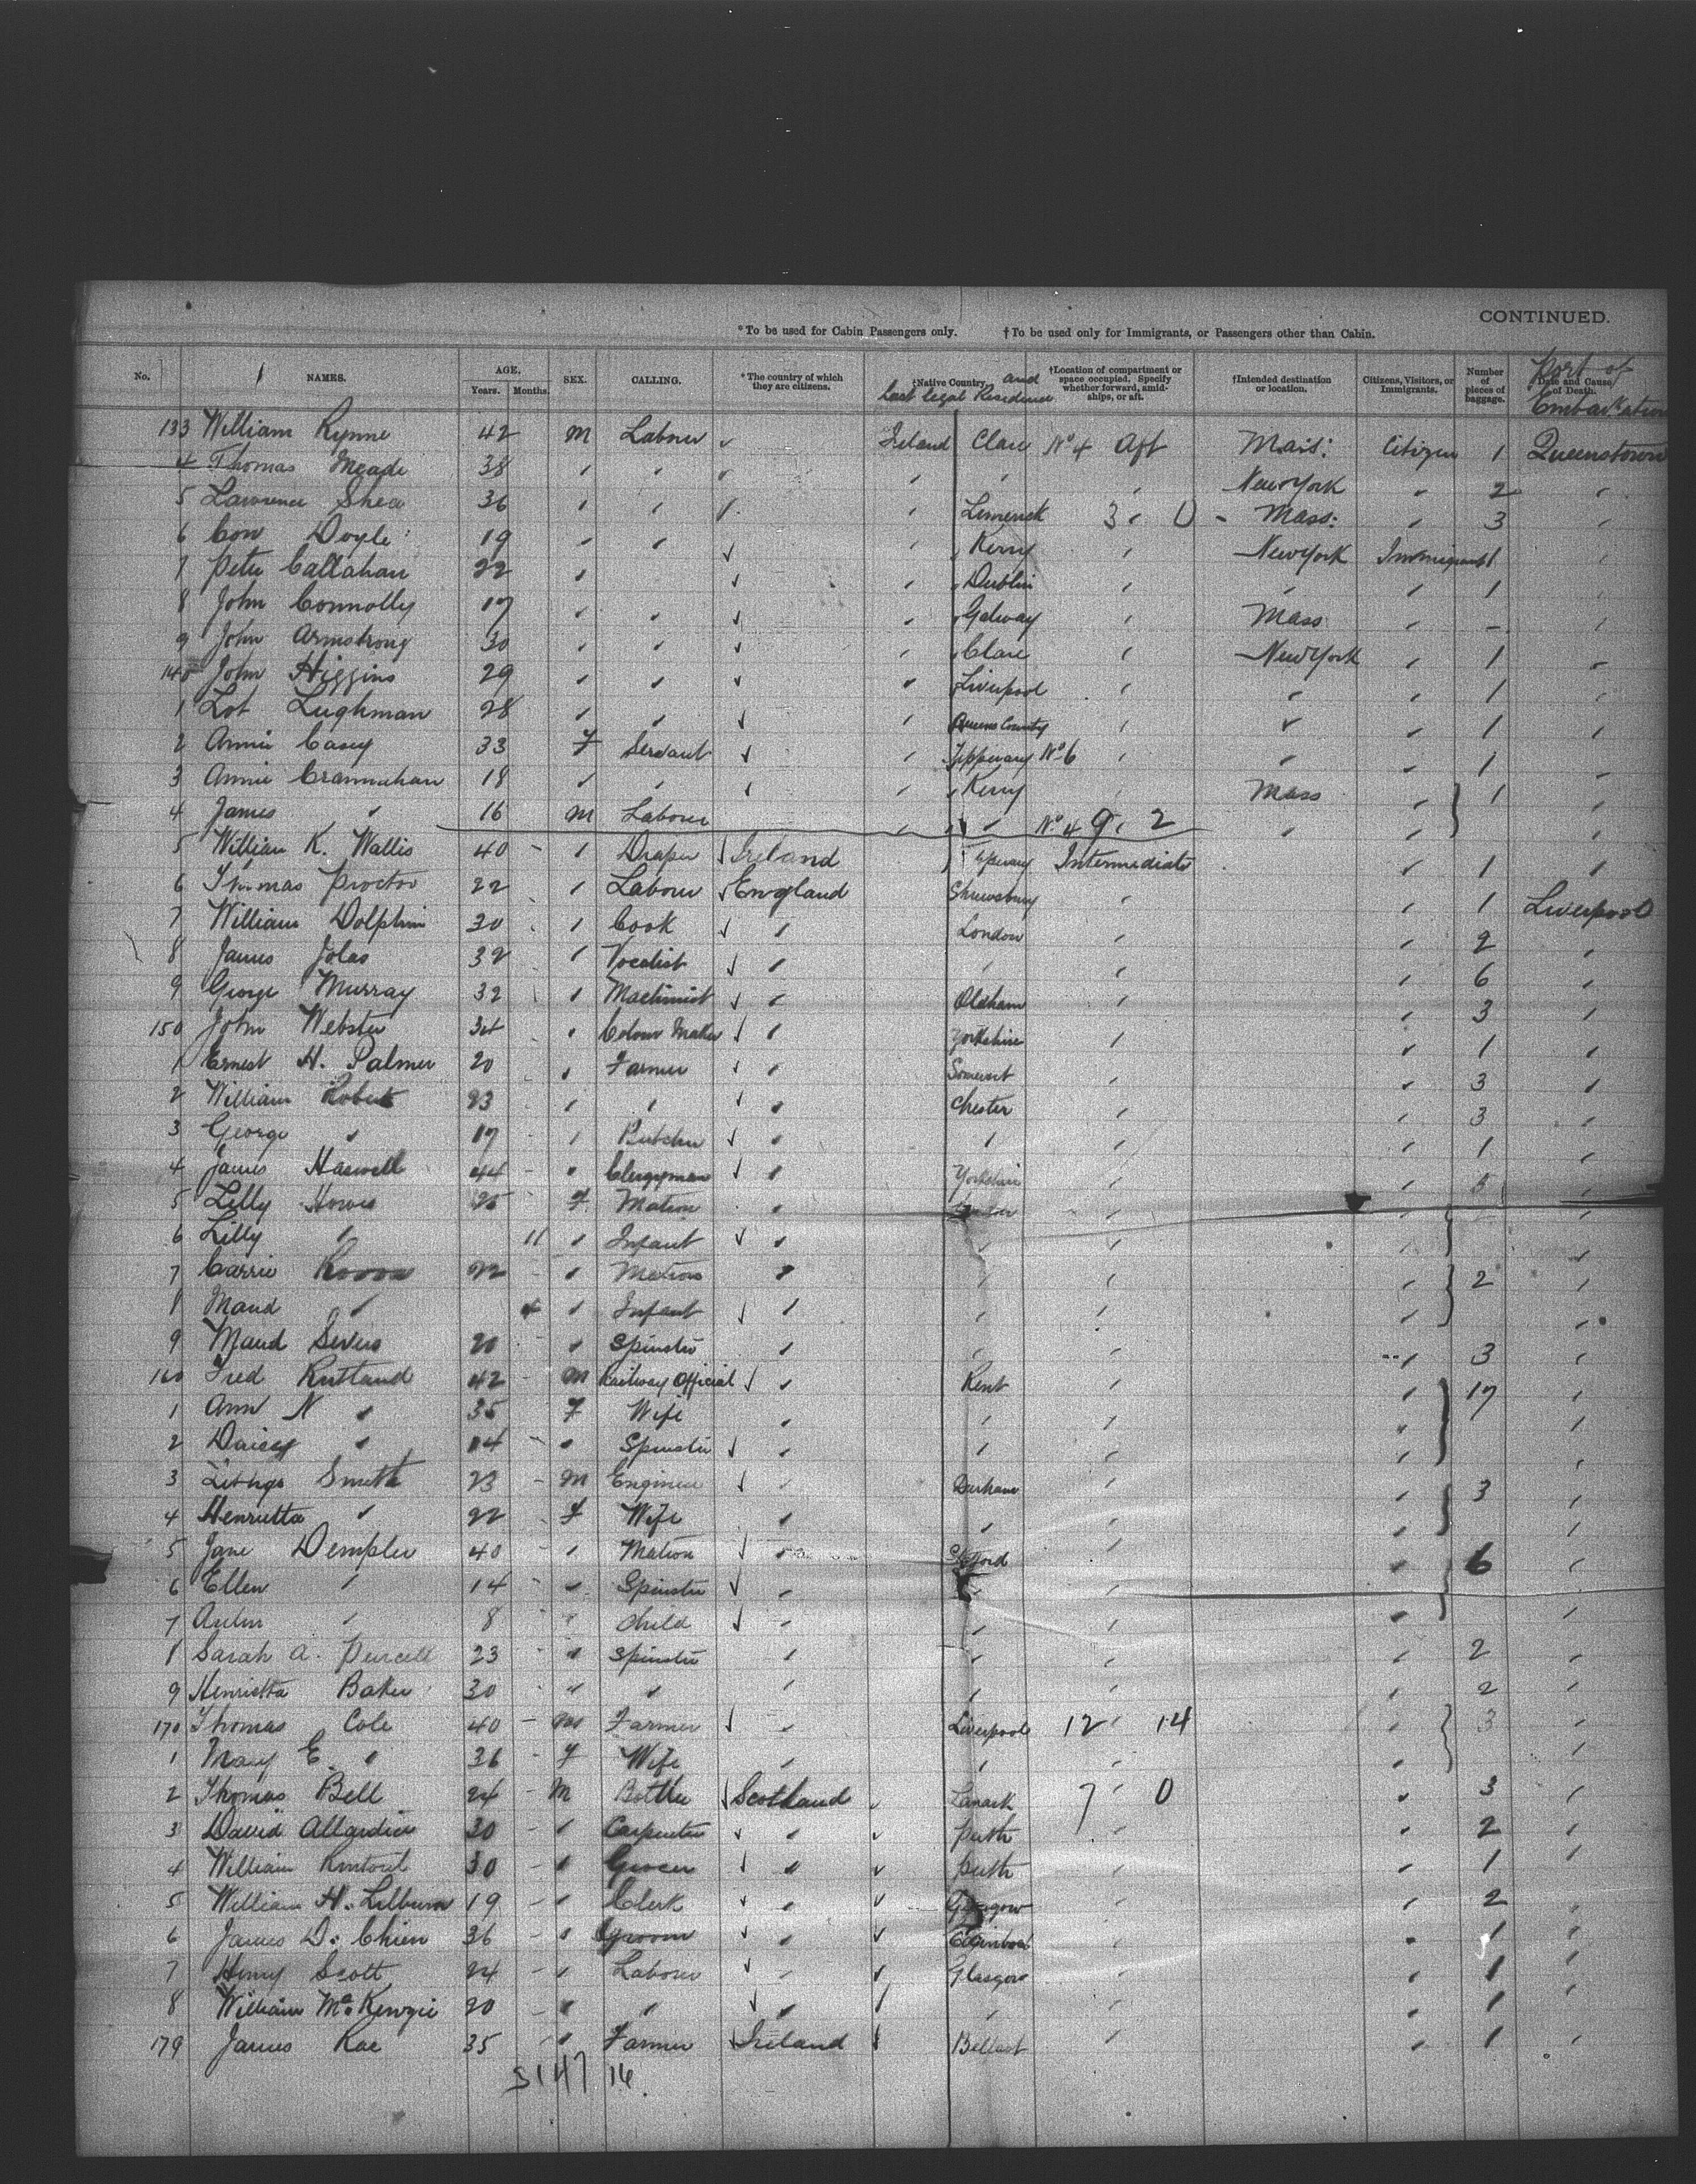 CONTINUED.
*To be used for Cabin Passengers only. †To be used only for Immigrants, or Passengers other than Cabin.
No. NAMES. AGE. Years. Months. SEX. CALLING. *The country of which they are citizens. †Native Country and last legal Residence †Location of compartment or space occupied. Specify whether forward, amidships, or aft. †Intended destination or location. Citizens, Visitors, or Immigrants. Number of pieces of baggage. Date and Cause of Death. Port of Embarkation
133 William Rynne 42 M Labour ✓ Ireland Clare No 4 Aft Mass: Citizen 1 Queenstown
4 Thomas Meade 38 " " " " " " New York " 2 "
5 Lawrence Shea 36 " " " Limerick 3 " 0 - Mass: " 3 "
6 Con Doyle 19 " " ✓ " Kerry " New York Immigrant 1 "
7 Peter Callahan 22 " ✓ " Dublin " " " 1 "
8 John Connolly 17 " " ✓ " Galway " Mass " - "
9 John Armstrong 30 " " ✓ " Clare " New York " 1 "
140 John Higgins 29 " " ✓ " Liverpool " " " 1 "
1 Lot Lughman 28 " " ✓ " Queens County " " " 1 "
2 Annie Casey 33 F Servant ✓ " Tipperary No 6 " " " 1 "
3 Annie Crannahan 18 " " ✓ " Kerry Mass " 1 "
4 James " 16 M Labour " " No 4 9 " 2 " " "
5 William K. Wallis 40 - " Draper ✓ Ireland Intermediate " 1 "
6 Thomas Proctor 22 " Labour ✓ England Shrewsbury " " 1 Liverpool
7 William Dolphin 30 " Cook ✓ " London " " 2 "
8 James Jolas 32 " Vocalist ✓ " " " " 6 "
9 George Murray 32 " Machinist ✓ " Oldham " " 3 "
150 John Webster 34 " Colour Maker ✓ " Yorkshire " " 1 "
1 Ernest H. Palmer 20 " Farmer ✓ " Somerset " " 3 "
2 William Robert 23 " " ✓ " Chester " " 3 "
3 George " 17 - " Butcher ✓ " " " " 1 "
4 James Haswell 44 - " Clergyman ✓ " Yorkshire " " "
5 Lilly Howes F Matron " " " "
6 Lilly " 11 " Infant ✓ " " " " "
7 Carrie 22 - " Matron " " " " 2 "
8 Maud " " Infant ✓ " " " " "
9 Maud 20 " Spinster " " " " 3 "
160 Fred Rutland 42 - M Railway Official ✓ " Kent " " 17 "
1 Ann N " 35 F Wife " " " " "
2 Daisy " 14 - " Spinster ✓ " " " " "
3 Smith 23 - M Engineer ✓ " Durham " " 3 "
4 Henrietta " 22 F Wife " " " " "
5 Jane Dempler 40 - " Matron ✓ " " " 6 "
6 Ellen " 14 - " Spinster ✓ " " " " "
7 " 8 " " Child ✓ " " " " "
8 Sarah A. Purcell 23 - " Spinster " " " " 2 "
9 Henrietta Baker 30 - " " " " " " 2 "
170 Thomas Cole 40 - M Farmer ✓ " Liverpool 12 " 14 " 3 "
1 Mary E. " 36 - F Wife " " " " "
2 Thomas Bell 24 - M ✓ Scotland ✓ Lanark 7 " 0 " 3 "
3 David Allardice 30 - " Carpenter ✓ " ✓ Perth " " 2 "
4 William Rintoul 30 - " Grocer ✓ " ✓ Perth " " 1 "
5 William H. Lilburn 19 - " Clerk ✓ " ✓ Glasgow " " 2 "
6 James D. Chien 36 - " Groom ✓ " ✓ " " 1 "
7 Henry Scott 24 - " Labour ✓ " ✓ Glasgow " " 1 "
8 William McKenzie 20 - " " ✓ " " " " 1 "
179 James Rae 35 - " Farmer ✓ Ireland ✓ Belfast " " 1 "
16